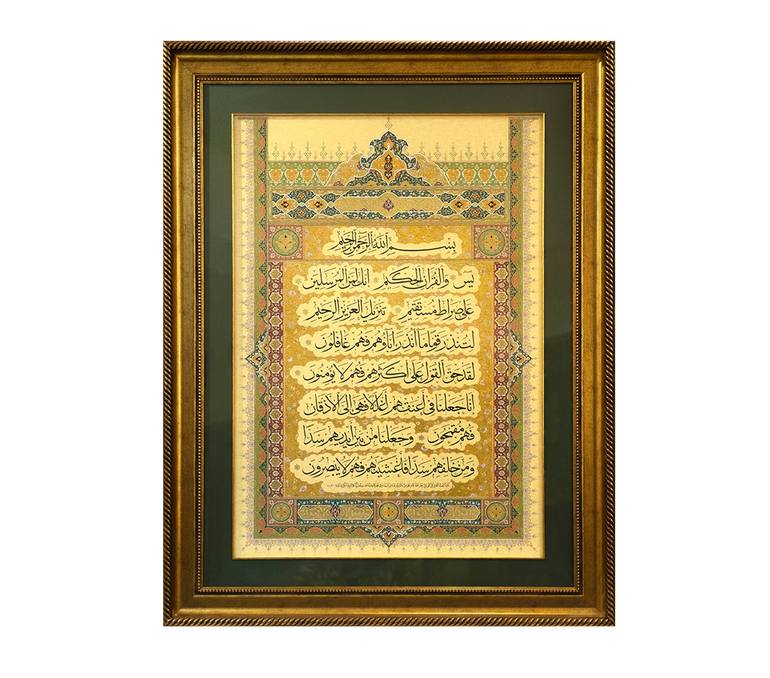 بسم الله الرحمن الرحيم
يس والقرآن الحكيم انك لمن المرسلين
على صراط مستقيم تنزيل العزيز الرحيم
لتنذر قوما ما أنذر اباؤهم فهم غافلون
لقد حق القول على اكثرهم فهم لا يؤمنون
انا جعلنا في أعنقهم أغلالا فهى الى الاذقان
فهم مقمحون وجعلنا من بين أيديهم سدا
ومن خلفهم سدا فأغشيناهم فهم لا يبصرون